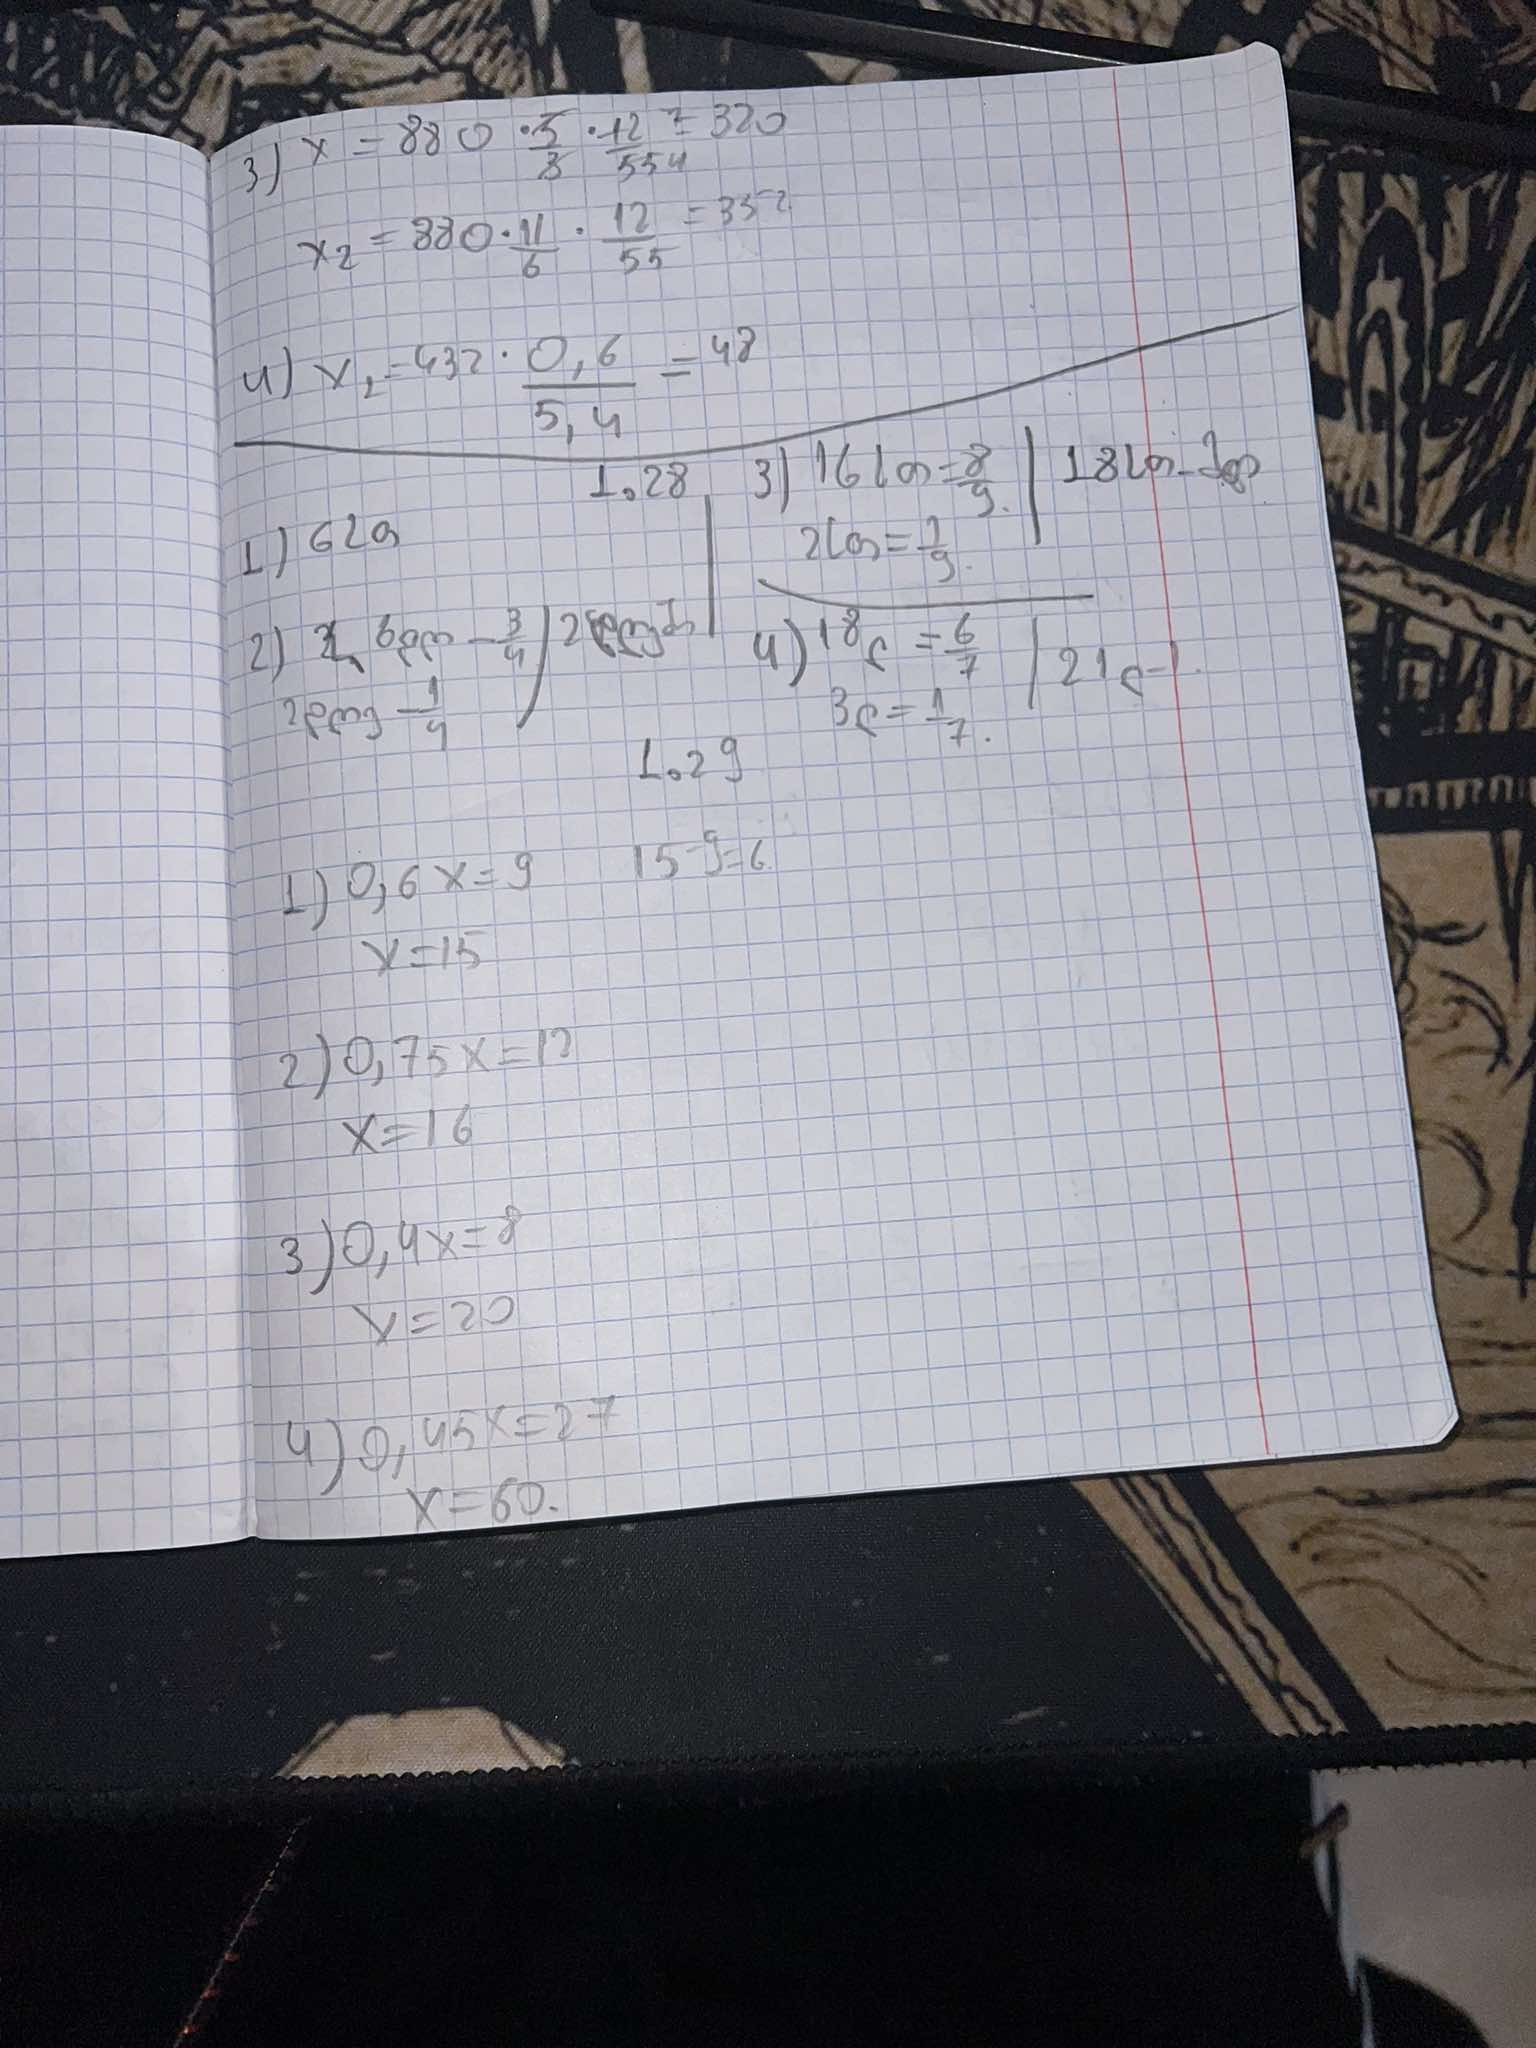 3) x = 880 · 5/3 · 12/55 = 320
x2 = 880 · 11/6 · 12/55 = 352
4) x1 = 432 · 0,6/5,4 = 48
1.28
1)
2) - 3/4
- 1/4
3) 16 = 8/9 | 18
2 = 1/9.
4) 18 = 6/7 | 21
3 = 1/7.
1.29
1) 0,6x=9 15-9=6
x=15
2) 0,75x=12
x=16
3) 0,4x=8
x=20
4) 0,45x=27
x=60.